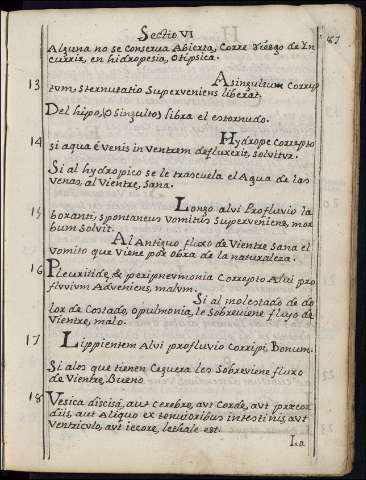 Sectio VI
87
Alguna no se conserva Abierta, Corre riesgo de Yn
currir, en hidropesia, O tipsica.
13 A singultum corrup
tum, sternutatio superveniens liberat.
Del hipo, (O Singulto) libra el estornudo.
14 Hydrope correpto
si aqua é venis in ventrem defluxerit, solvitur.
Si al hydropico se le trascuela el Agua de las
venas, al Vientre, sana.
15 Longo alvi Profluvio la
boranti, spontaneus vomitus Superveniens, mor
bum Solvit.
Al Antiguo fluxo de Vientre sana el
vomito que viene por obra de la naturaleza.
16 Pleuritide, & peripnevmonia Correpto Alvi pro
fluvium Adveniens, malum.
Si al molestado de do
lor de Costado, o pulmonia, le Sobreviene flujo de
Vientre, malo.
17 Lippientem Alvi profluvio corripi, Bonum.
Si a los que tienen Ceguera les Sobreviene fluxo
de Vientre, Bueno
18 Vesica discisa, aut cerebro, aut Corde, aut præcor
diis, aut Aliquo ex tenuioribus intestinis, aut
Ventriculo, aut iecore, lethale est.
La